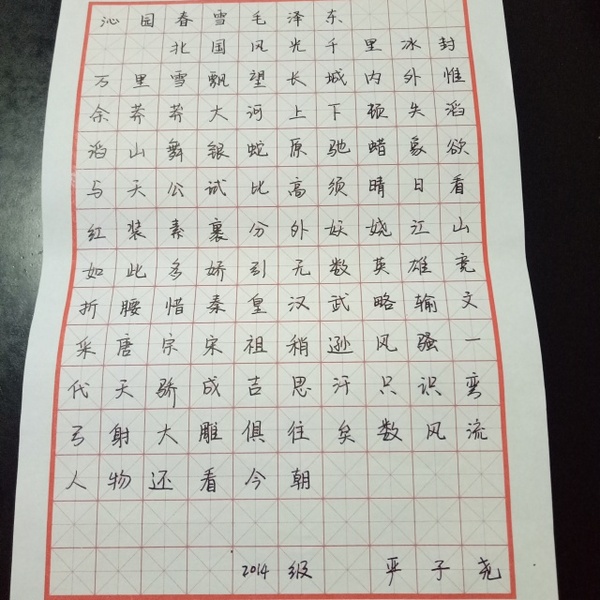 沁园春雪毛泽东
北国风光千里冰封
万里雪飘望长城内外惟
余莽莽大河上下顿失滔
滔山舞银蛇原驰蜡象欲
与天公试比高须晴日看
红装素裹分外妖娆江山
如此多娇引无数英雄竞
折腰惜秦皇汉武略输文
采唐宗宋祖稍逊风骚一
代天骄成吉思汗只识弯
弓射大雕俱往矣数风流
人物还看今朝
2014级 严子尧